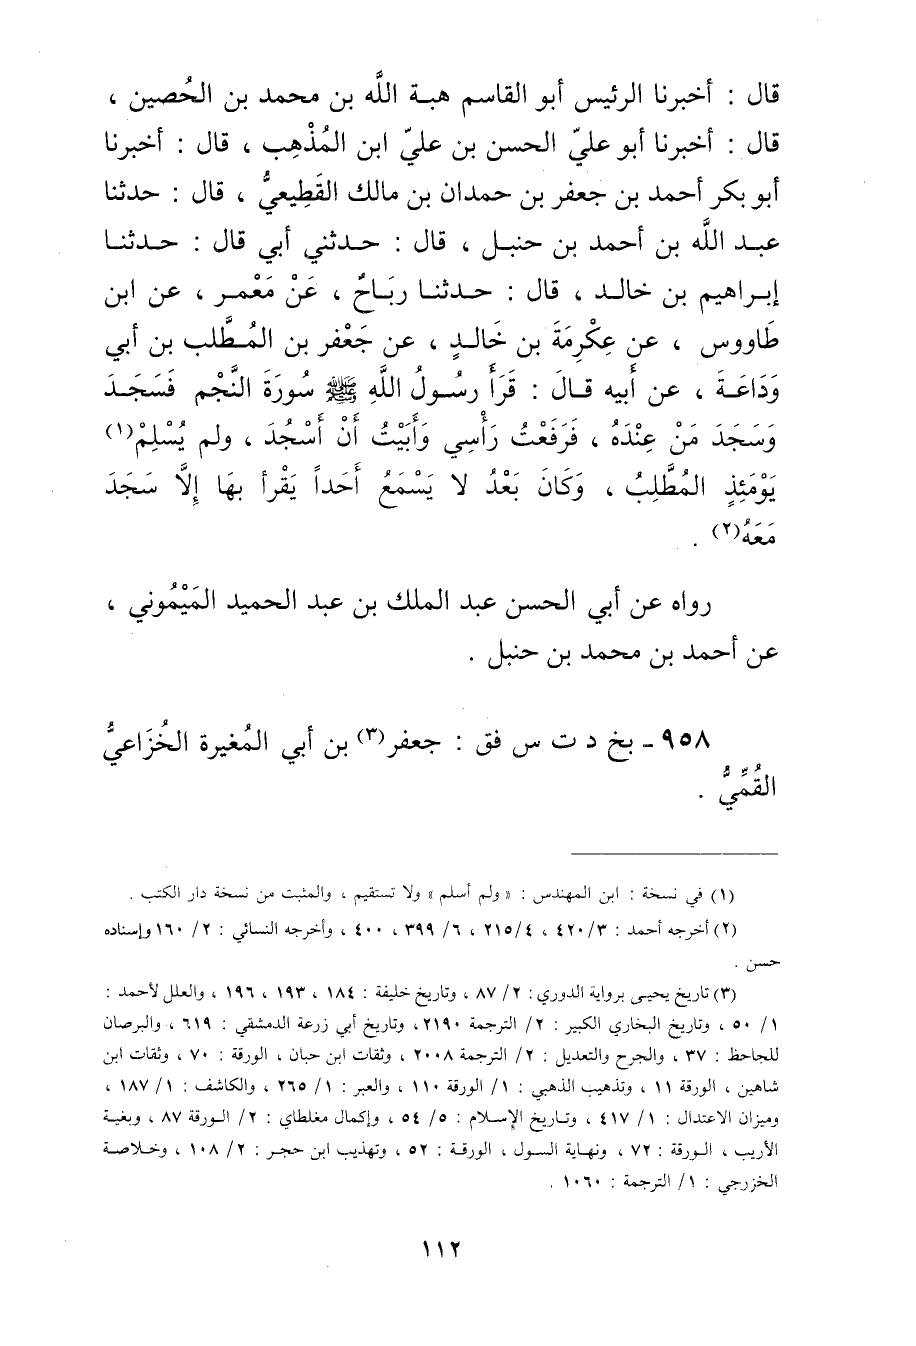 قال : أخبرنا الرئيس أبو القاسم هبة الله بن محمد بن الحُصين ،
قال : أخبرنا أبو عليّ الحسن بن عليّ ابن المُذْهِب ، قال : أخبرنا
أبو بكر أحمد بن جعفر بن حمدان بن مالك القَطِيعيُّ ، قال : حدثنا
عبد الله بن أحمد بن حنبل ، قال : حدثني أبي قال : حدثنا
إبراهيم بن خالد ، قال : حدثنا ربَاحُ ، عَنْ مَعْمر ، عن ابن
طَاووس ، عن عِكْرِمَةَ بن خَالدٍ ، عن جَعْفر بن المُطَّلب بن أبي
وَدَاعَةَ ، عن أبيه قالَ : قَرَأَ رسُولُ اللهِ ﷺ سُورَةَ النَّجْم فَسَجَدَ
وَسَجَدَ مَنْ عِنْدَهُ ، فَرَفَعْتُ رَأْسِي وَأَبَيْتُ أَنْ أَسْجُدَ ، ولم يُسْلِمْ(١)
يَوْمَئِذٍ المُطَّلِبُ ، وَكَانَ بَعْدُ لا يَسْمَعُ أَحَداً يَقْرأ بهَا إِلَّا سَجَدَ
مَعَهُ(٢) .
رواه عن أبي الحسن عبد الملك بن عبد الحميد المَيْمُوني ،
عن أحمد بن محمد بن حنبل .
٩٥٨ - بخ د ت س فق : جعفر(٣) بن أبي المُغيرة الخُزَاعيُّ
القُمِّيُّ .
(١) في نسخة : ابن المهندس : « ولم أسلم » ولا تستقيم ، والمثبت من نسخة دار الكتب .
(٢) أخرجه أحمد : ٣/ ٤٢٠ ، ٤/ ٢١٥ ، ٦/ ٣٩٩ ، ٤٠٠ ، وأخرجه النسائي : ٢/ ١٦٠ وإسناده
حسن .
(٣) تاريخ يحيى برواية الدوري: ٢/ ٨٧ ، وتاريخ خليفة : ١٨٤ ، ١٩٣ ، ١٩٦ ، والعلل لأحمد :
١/ ٥٠ ، وتاريخ البخاري الكبير : ٢/ الترجمة ٢١٩٠، وتاريخ أبي زرعة الدمشقي : ٦١٩ ، والبرصان
للجاحظ : ٣٧ ، والجرح والتعديل : ٢/ الترجمة ٢٠٠٨ ، وثقات ابن حبان ، الورقة : ٧٠ ، وثقات ابن
شاهين ، الورقة ١١ ، وتذهيب الذهبي : ١/ الورقة ١١٠ ، والعبر : ١/ ٢٦٥ ، والكاشف : ١/ ١٨٧ ،
وميزان الاعتدال : ١/ ٤١٧ ، وتاريخ الإسلام : ٥/ ٥٤ ، وإكمال مغلطاي : ٢/ الورقة ٨٧ ، وبغية
الأريب ، الورقة : ٧٢ ، ونهاية السول ، الورقة : ٥٢ ، وتهذيب ابن حجر : ٢/ ١٠٨ ، وخلاصة
الخزرجي : ١/ الترجمة : ١٠٦٠ .
١١٢